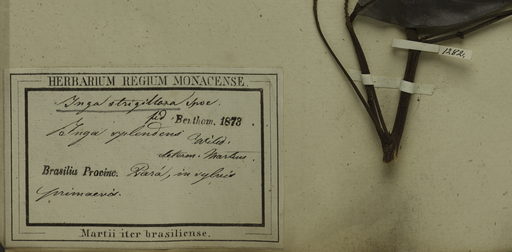 HERBARIUM REGIUM MONACENSE.
Inga strigillosa Spce.
fid. Benthom. 1873
Inga splendens Willd.
determ. Martius.
Brasilia Provinc. Pará, in sylvis
primaevis.
Martii iter brasiliense.
1282.